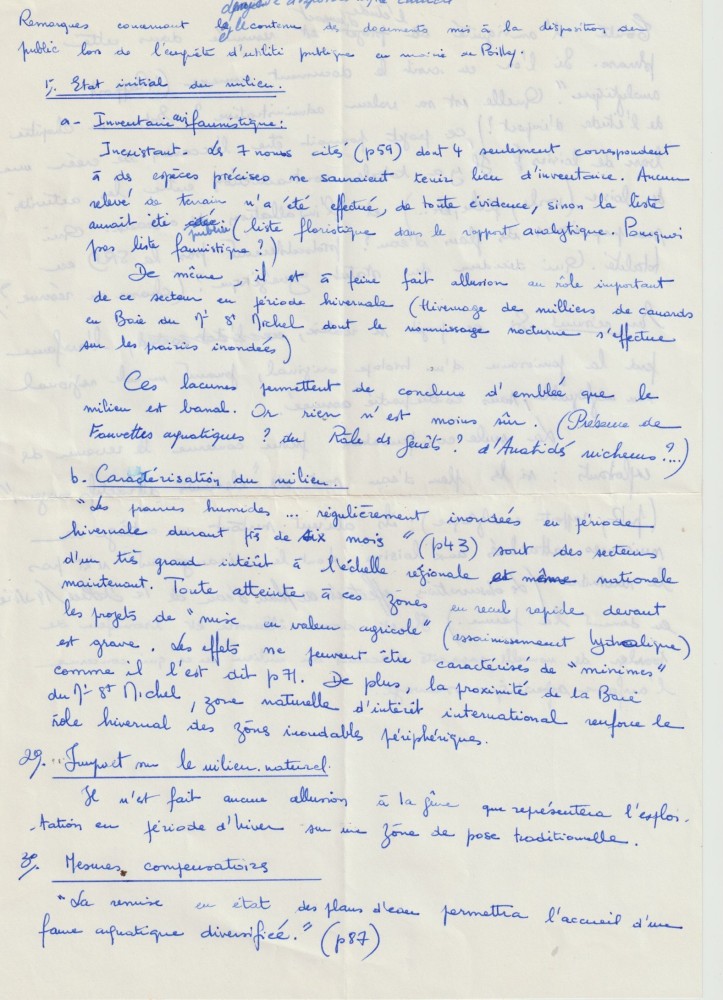 Remarques concernant le contenu des documents mis à la disposition du
public lors de l'enquête d'utilité publique en mairie de Poilley.
1°/. Etat initial du milieu.
a - Inventaire faunistique :
Inexistant. Les 7 noms cités (p59) dont 4 seulement correspondent
à des espèces précises ne sauraient tenir lieu d'inventaire. Aucun
relevé de terrain n'a été effectué, de toute évidence, sinon la liste
aurait été publiée (liste floristique dans le rapport analytique. Pourquoi
pas liste faunistique ?)
De même, il est à peine fait allusion au rôle important
de ce secteur en période hivernale (Hivernage de milliers de canards
en Baie du Mt St Michel dont le nourrissage nocturne s'effectue
sur les prairies inondées)
Ces lacunes permettent de conclure d'emblée que le
milieu est banal. Or rien n'est moins sûr. (Présence de
Fauvettes aquatiques ? du Râle des Genêts ? d'Anatidés nicheurs ?...)
b. Caractérisation du milieu.
"Les prairies humides ... régulièrement inondées en période
hivernale durant près de six mois" (p43) sont des secteurs
d'un très grand intérêt à l'échelle régionale et même nationale
maintenant. Toute atteinte à ces zônes en recul rapide devant
les projets de "mise en valeur agricole" (assainissement hydraulique)
est grave. Les effets ne peuvent être caractérisés de "minimes"
comme il l'est dit p71. De plus, la proximité de la Baie
du Mt St Michel, zone naturelle d'intérêt international renforce le
rôle hivernal des zônes inondables périphériques.
2°/. Impact sur le milieu naturel.
Il n'est fait aucune allusion à la gêne que représentera l'exploi-
-tation en période d'hiver sur une zône de pose traditionnelle.
3°/. Mesures compensatoires
"La remise en état des plans d'eau permettra l'accueil d'une
faune aquatique diversifiée." (p87)